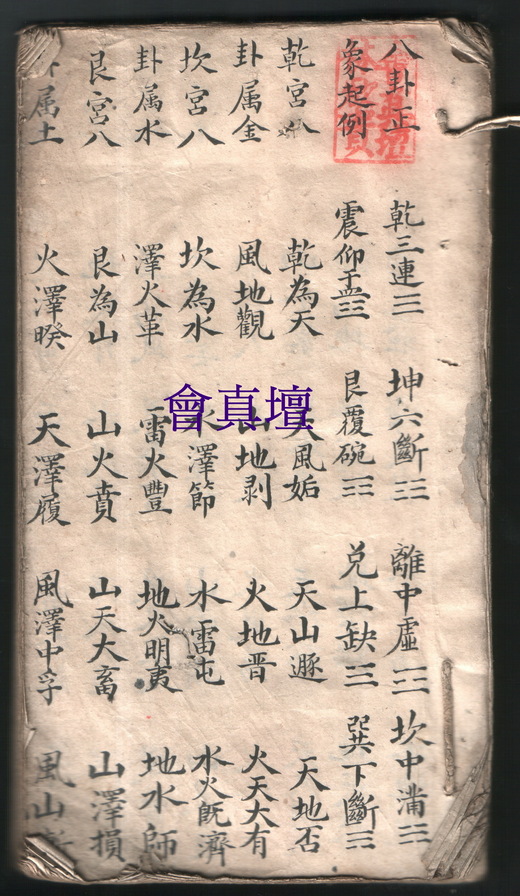 八卦正 乾三連☰ 坤六斷☷ 離中虛☲ 坎中滿☵
象起例 震仰盂☳ 艮覆碗☶ 兌上缺☱ 巽下斷☴
乾宮八 乾為天 天風姤 天山遯 天地否
卦属金 風地觀 山地剥 火地晋 火天大有
坎宮八 坎為水 水澤節 水雷屯 水火既濟
卦属水 澤火革 雷火豐 地火明夷 地水師
艮宮八 艮為山 山火賁 山天大畜 山澤損
卦属土 火澤睽 天澤履 風澤中孚 風山
會真壇